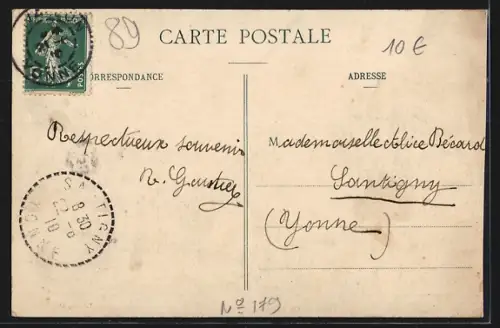 89
CARTE POSTALE
10 €
CORRESPONDANCE
ADRESSE
YONNE
POSTES
Respectueux souvenir
Mademoiselle Alice Bécard
Santigny
(Yonne)
SANTIGNY
8 30
22 -8
10
YONNE
No 179